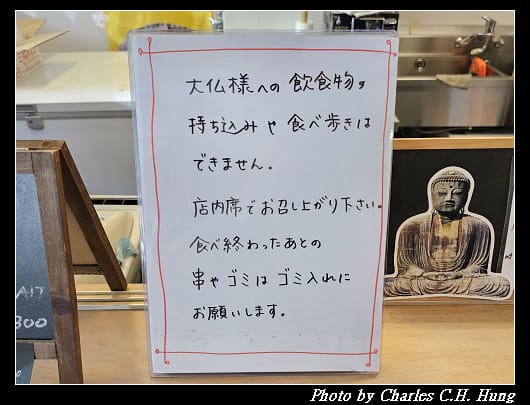 大仏様への飲食物の
持ち込みや食べ歩きは
できません。
店内席でお召し上がり下さい。
食べ終わったあとの
串やゴミはゴミ入れに
お願いします。
300
Photo by Charles C.H. Hung